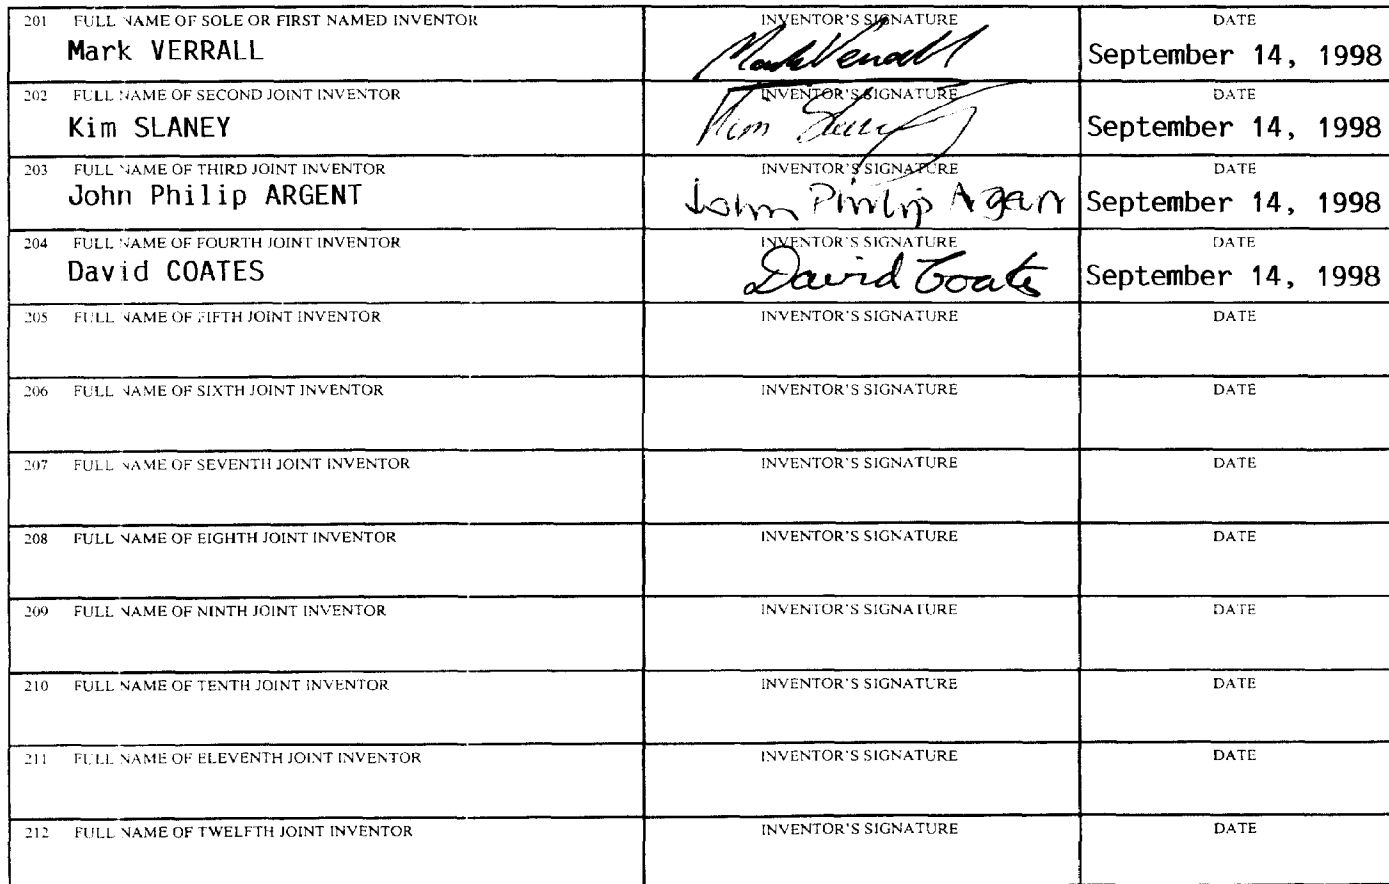 201 FULL NAME OF SOLE OR FIRST NAMED INVENTOR INVENTOR'S SIGNATURE DATE
Mark VERRALL Mark Verrall September 14, 1998
202 FULL NAME OF SECOND JOINT INVENTOR INVENTOR'S SIGNATURE DATE
Kim SLANEY Kim Slaney September 14, 1998
203 FULL NAME OF THIRD JOINT INVENTOR INVENTOR'S SIGNATURE DATE
John Philip ARGENT John Philip Argent September 14, 1998
204 FULL NAME OF FOURTH JOINT INVENTOR INVENTOR'S SIGNATURE DATE
David COATES David Coates September 14, 1998
205 FULL NAME OF FIFTH JOINT INVENTOR INVENTOR'S SIGNATURE DATE
206 FULL NAME OF SIXTH JOINT INVENTOR INVENTOR'S SIGNATURE DATE
207 FULL NAME OF SEVENTH JOINT INVENTOR INVENTOR'S SIGNATURE DATE
208 FULL NAME OF EIGHTH JOINT INVENTOR INVENTOR'S SIGNATURE DATE
209 FULL NAME OF NINTH JOINT INVENTOR INVENTOR'S SIGNATURE DATE
210 FULL NAME OF TENTH JOINT INVENTOR INVENTOR'S SIGNATURE DATE
211 FULL NAME OF ELEVENTH JOINT INVENTOR INVENTOR'S SIGNATURE DATE
212 FULL NAME OF TWELFTH JOINT INVENTOR INVENTOR'S SIGNATURE DATE